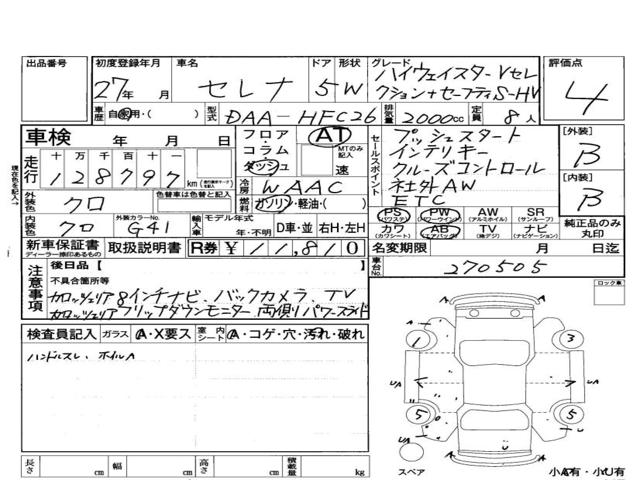 出品番号
初度登録年月
車名
ドア
形状
グレード
評価点
27年
月
セレナ
5W
ハイウェイスターVセレ
クション+セーフティS-HV
4
車歴
自家用・( )
型式
DAA-HFC26
排気量
2000cc
定員
8人
車検 年 月 日
フロア
コラム
ダッシュ
AT
MTのみ記入
速
セールスポイント
プッシュスタート
インテリキー
クルーズコントロール
社外AW
ETC
[外装]
B
[内装]
B
走行
十 万 千 百 十 一
128797
km
冷房
WAAC
燃料
ガソリン・軽油・( )
現在色を記入→
外装色
クロ
色替車は色替と記入
内装色
クロ
外装カラーNo.
G41
輸入車
モデル年式
年・不明
D車・並
右H・左H
PS
(パワステ)
PW
(パワーウインド)
AW
(アルミホイル)
SR
(サンルーフ)
カワ
(カワシート)
AB
(エアバッグ)
TV
(地デジ)
ナビ
(ナビゲーション)
純正品のみ
丸印
新車保証書
ディーラー捺印あるもの
取扱説明書
R券
¥11,810
名変期限
月
日迄
車台No.
270505
注意事項
後日品【 】
不具合箇所等
カロッツェリア8インチナビ、バックカメラ、TV
カロッツェリアフリップダウンモニター 両側パワースライド
ロック車
検査員記入
ガラス
A・X要ス
室内シート
A・コゲ・穴・汚れ・破れ
ハンドルスレ、ホイルA
1
3
UA
A
UA
5
5
A
A
スペア
小A有・小U有
長さ
cm
幅
cm
高さ
cm
積載量
kg